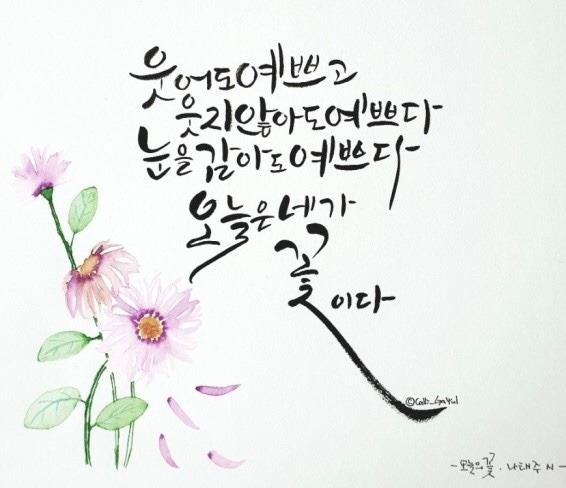 웃어도 예쁘고
웃지않아도 예쁘다
눈을 감아도 예쁘다
오늘은 네가
꽃
이다
- 오늘의 꽃 . 나태주 시 -